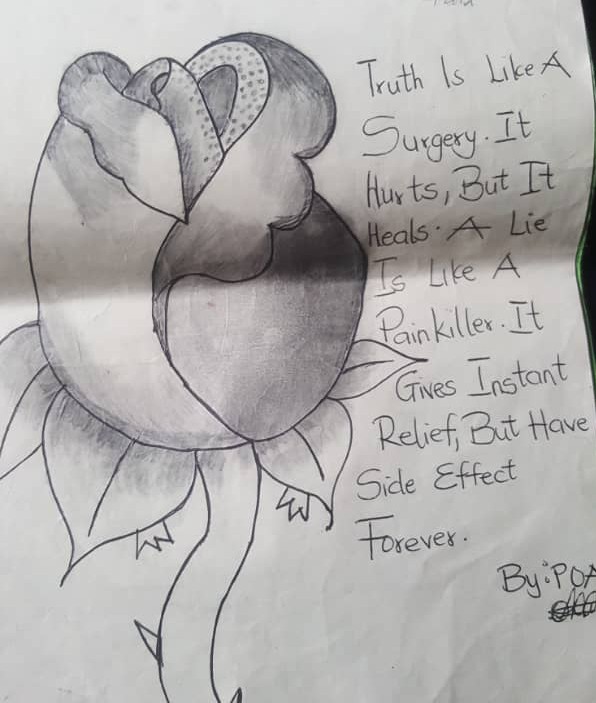 Truth Is Like A
Surgery. It
Hurts, But It
Heals. A Lie
Is Like A
Painkiller. It
Gives Instant
Relief, But Have
Side Effect
Forever.
By: